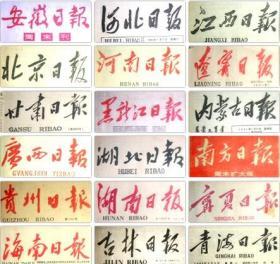 安徽日报
周末刊
河北日报
HEBEI RIBAO
江西日报
JIANGXI RIBAO
北京日报
河南日报
HENAN RIBAO
辽宁日报
LIAONING RIBAO
甘肃日报
GANSU RIBAO
黑龙江日报
内蒙古日报
廣西日报
GUANGXI RIBAO
湖北日报
HUBEI RIBAO
南方日报
周末扩大版
贵州日报
GUIZHOU RIBAO
湖南日报
HUNAN RIBAO
宁夏日报
NINGXIA RIBAO
海南日报
吉林日报
JILIN RIBAO
青海日报
QINGHAI RIBAO